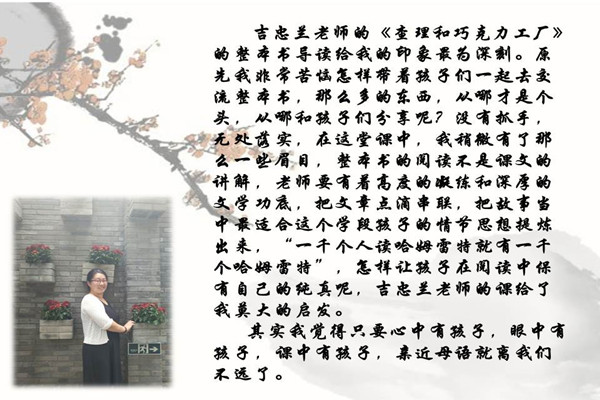 吉忠兰老师的《查理和巧克力工厂》
的整本书导读给我的印象最为深刻。原
先我非常苦恼怎样带着孩子们一起去交
流整本书，那么多的东西，从哪才是个
头，从哪和孩子们分享呢？没有抓手，
无处落实，在这堂课中，我稍微有了那
么一些眉目，整本书的阅读不是课文的
讲解，老师要有着高度的凝练和深厚的
文学功底，把文章点滴串联，把故事当
中最适合这个学段孩子的情节思想提炼
出来，“一千个人读哈姆雷特就有一千
个哈姆雷特”，怎样让孩子在阅读中保
有自己的纯真呢，吉忠兰老师的课给了
我莫大的启发。
其实我觉得只要心中有孩子，眼中有
孩子，课中有孩子，亲近母语就离我们
不远了。